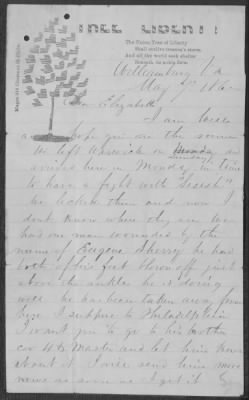 TREE LIBERTY
The Union Tree of Liberty
Shall outlive treason's storm
And all the world seek shelter
Beneath its noble form
Williamsburg Va
May 7th 1862
Dear Elizabeth
I am well
hope you are the same
We left Warwick on Sunday
Sunday
arrived here on Monday in time
to have a fight with Secesh
We licked them and now I
dont know where they are we
has one man wounded by the
name of Eugene Sherry he had
both of his feet blown off just
above the ankles he is doing
well he has been taken away from
here I suppose to Philadelphia
I want you to go to his brother
cor 4th & Master and let him know
about it I will send him more
news as soon as I get it